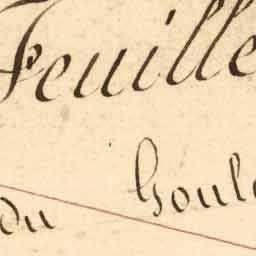 Feuille
du Goule